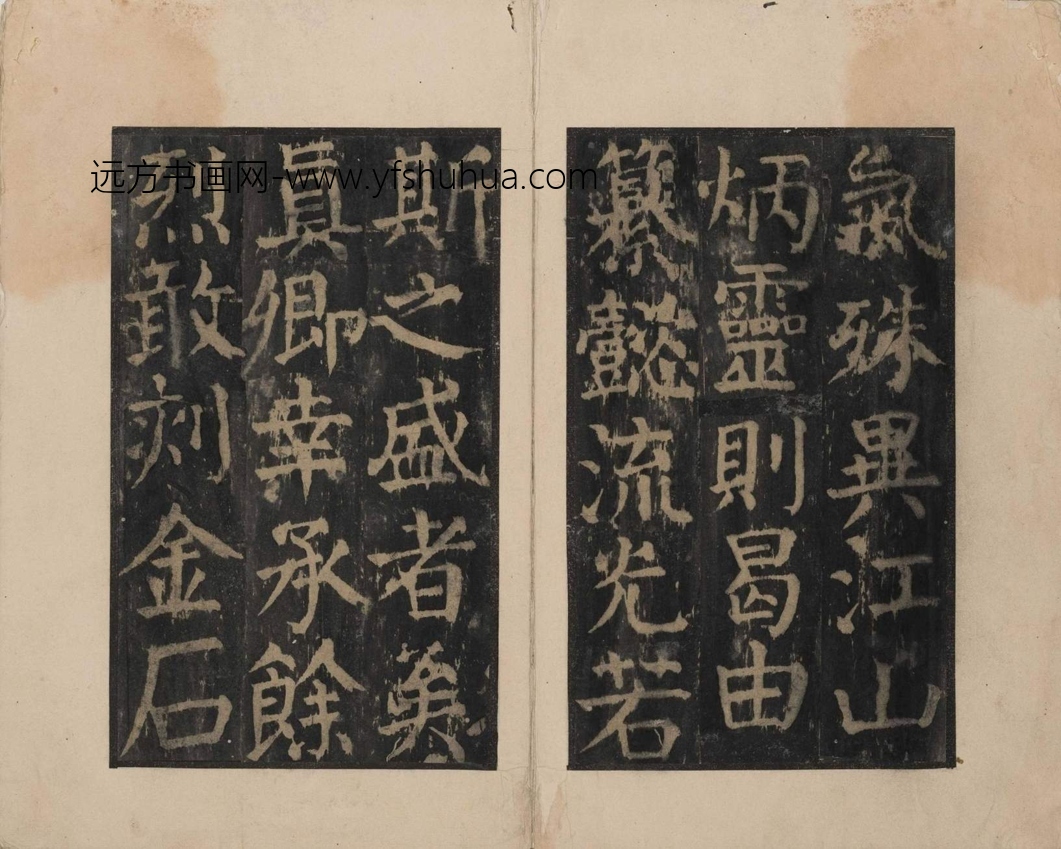 氣殊異江山
炳靈則曷由
纂懿流光若
斯之盛者矣
眞卿幸承餘
烈敢刻金石
远方书画网-www.yfshuhua.com